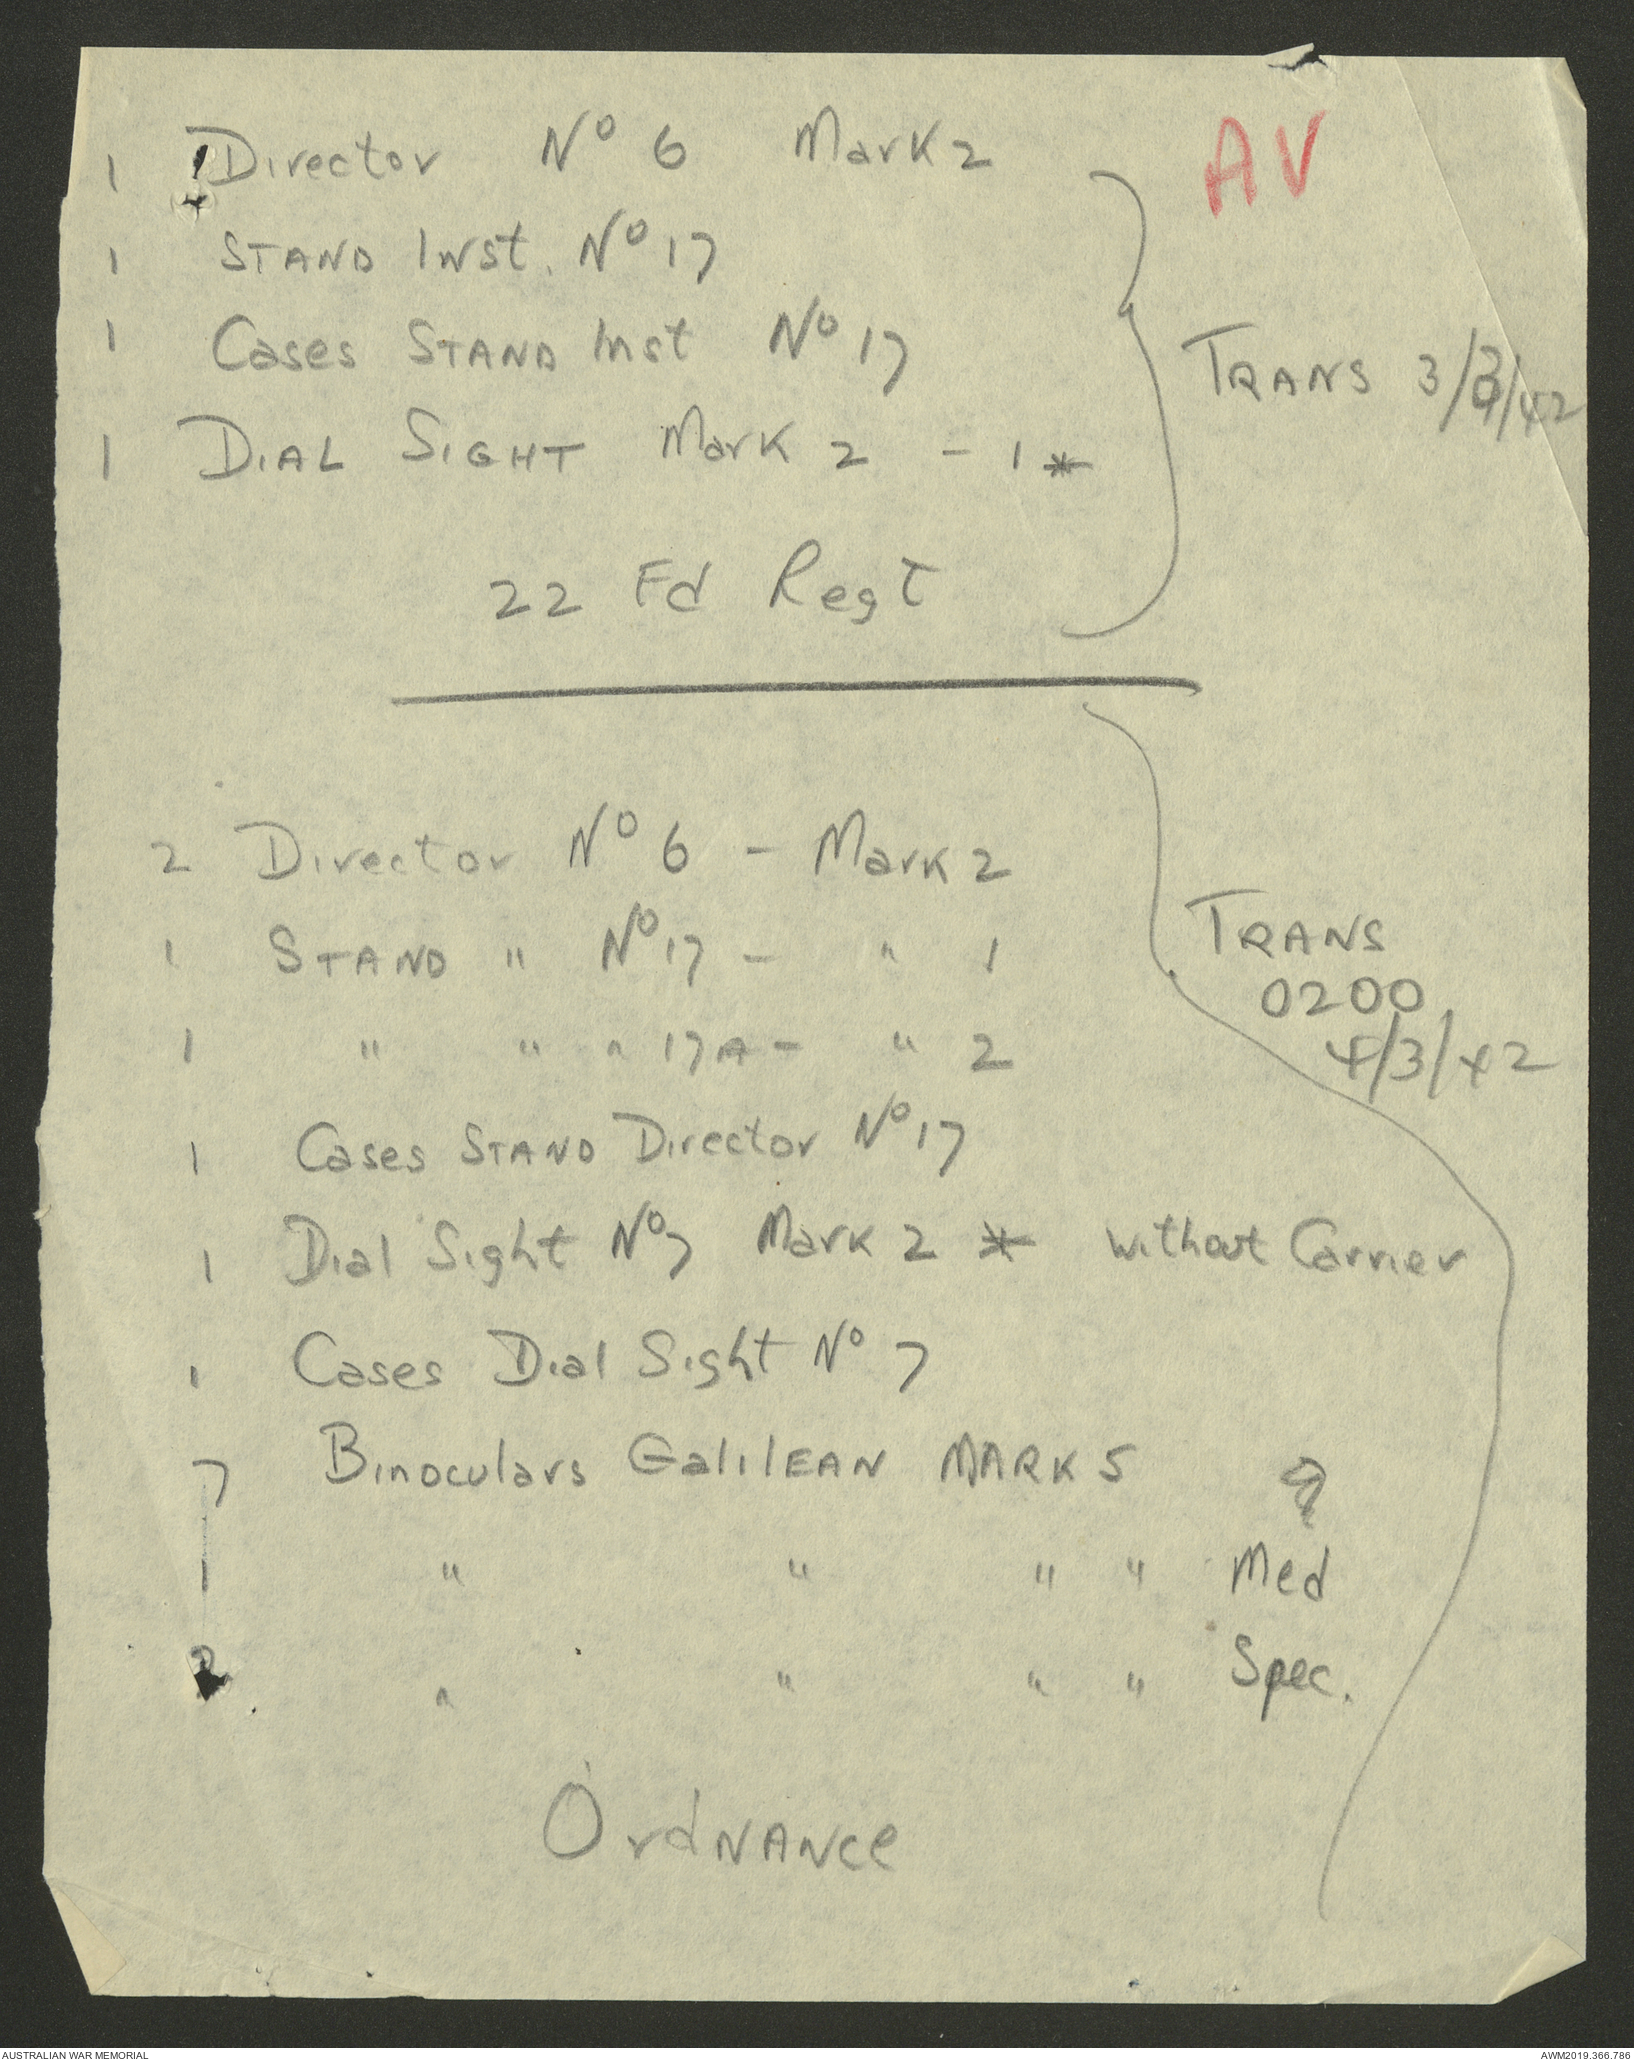 AV
1 Director No 6 Mark 2
1 STAND Inst. No 17
1 Cases STAND Inst No 17
TRANS 3/3/42
1 DIAL SIGHT Mark 2 - 1 *
22 Fd Regt
2 Director No 6 - Mark 2
1 STAND " No 17 - " 1
TRANS
0200
4/3/42
1 " " " 17A - " 2
1 Cases STAND Director No 17
1 Dial Sight No 7 Mark 2 * without Carrier
1 Cases Dial Sight No 7
7 Binoculars GalilEAN MARK 5
1 " " " " Med
2 " " " " Spec.
OrdNANce
AUSTRALIAN WAR MEMORIAL
AWM2019.366.786